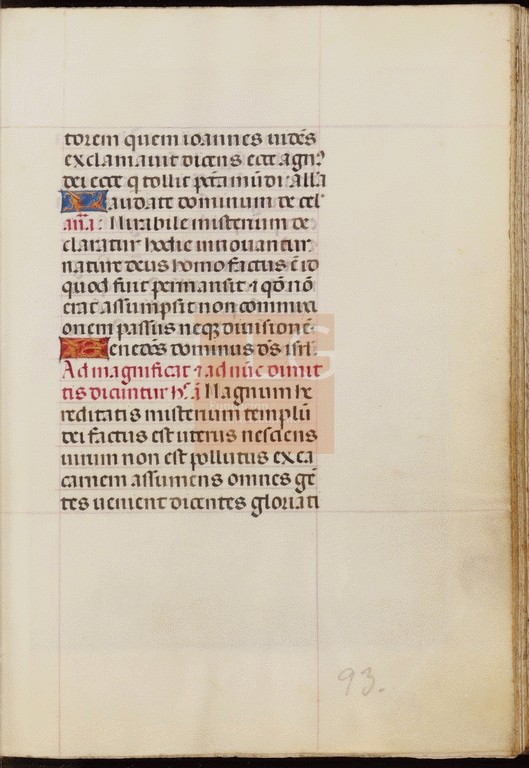 torem quem ioannes uidēs
exclamauit dicens ecce agnꝰ
dei ecce q tollit pctā mūdi alla
Laudate dominum de cel'
añā: Mirabile misterium de
claratur hodie innouantur
nature deus homo factus ē id
quod fuit permansit ⁊ qđ nō
erat assumpsit non commixti
onem passus neqꝫ diuisionē.
Benedc̄s dominus ds̄ isrl'.
Ad magnificat ⁊ ad nūc dimit
tis dicuntur h' ā Magnum he
reditatis misterium templū
dei factus est uterus nesciens
uirum non est pollutus ex ea
carnem assumens omnes gē
tes uenient dicentes gloria ti
93.